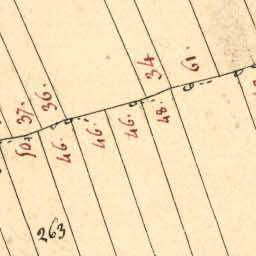 37.
36.
34
61.
46.
46.
46.
48.
263